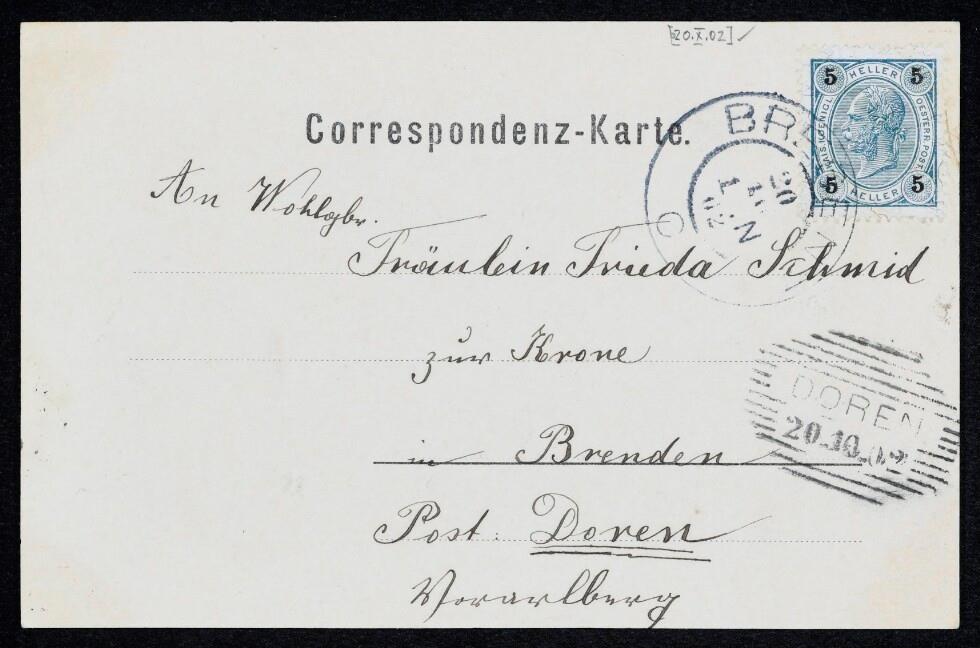 [20.X.02]
5 HELLER 5
KAIS. KOENIGL. OESTERR. POST.
5 HELLER 5
Correspondenz-Karte.
BRE
20
02
An Wohlgbr.
Fräulein Frieda Schmid
zur Krone
DOREN
20.10.02
in Brenden
Post. Doren
Vorarlberg